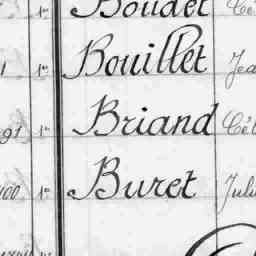 1er Boudet Cé
1 1er Bouillet Jea
91 1er Briand Cél
400 1er Buret Juli